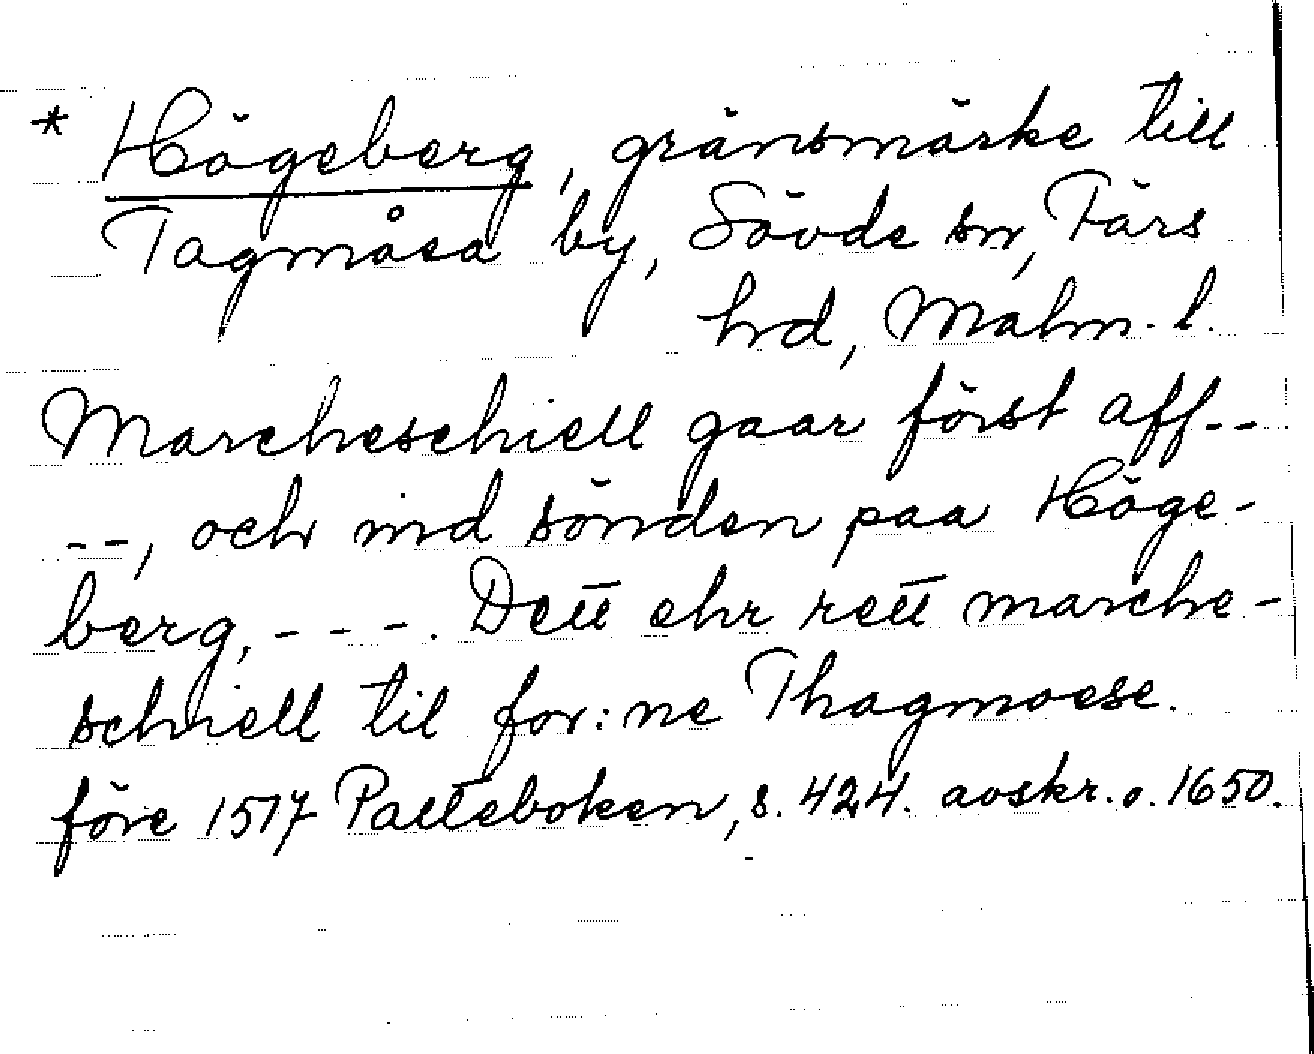 * Högeberg, gränsmärke till
Tagmåsa by, Sövde sn, Färs
hrd, Malm. l.
Marcheschiell gaar först aff--
--, och nid sönden paa Höge-
berg, - - -. Dett ehr rett marche-
schiell til for:ne Thagmoese.
före 1517 Palteboken, s. 424. avskr. o. 1650.